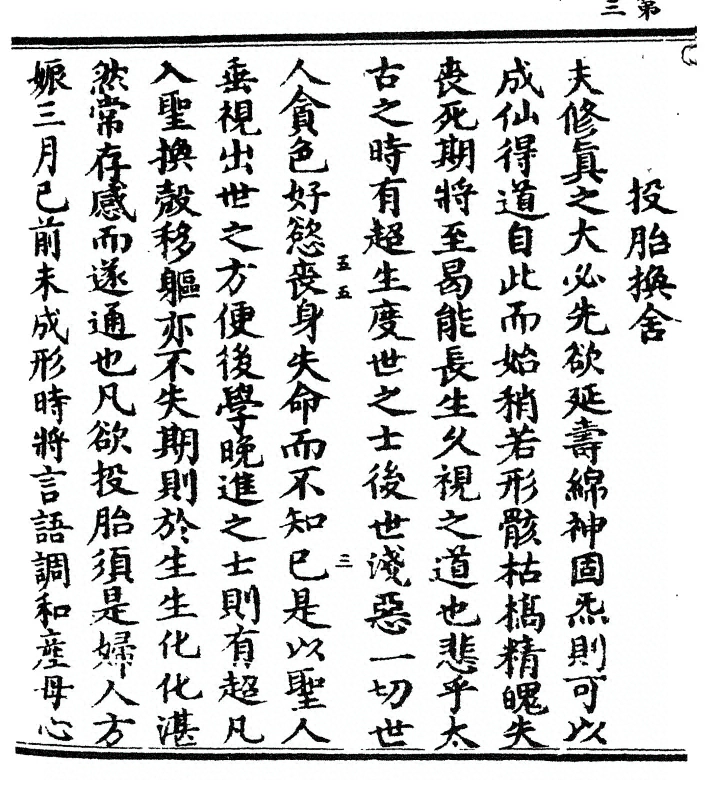 第三
投胎換舍
夫修眞之大必先欲延壽綿神固炁則可以
成仙得道自此而始稍若形骸枯槁精魄失
喪死期將至曷能長生久視之道也悲乎太
古之時有超生度世之士後世淺惡一切世
人貪色好慾喪身失命而不知已是以聖人
垂視出世之方便後學晚進之士則有超凡
入聖換殼移軀亦不失期則於生生化化湛
然常存感而遂通也凡欲投胎須是婦人方
娠三月已前未成形時將言語調和產母心
五五
三